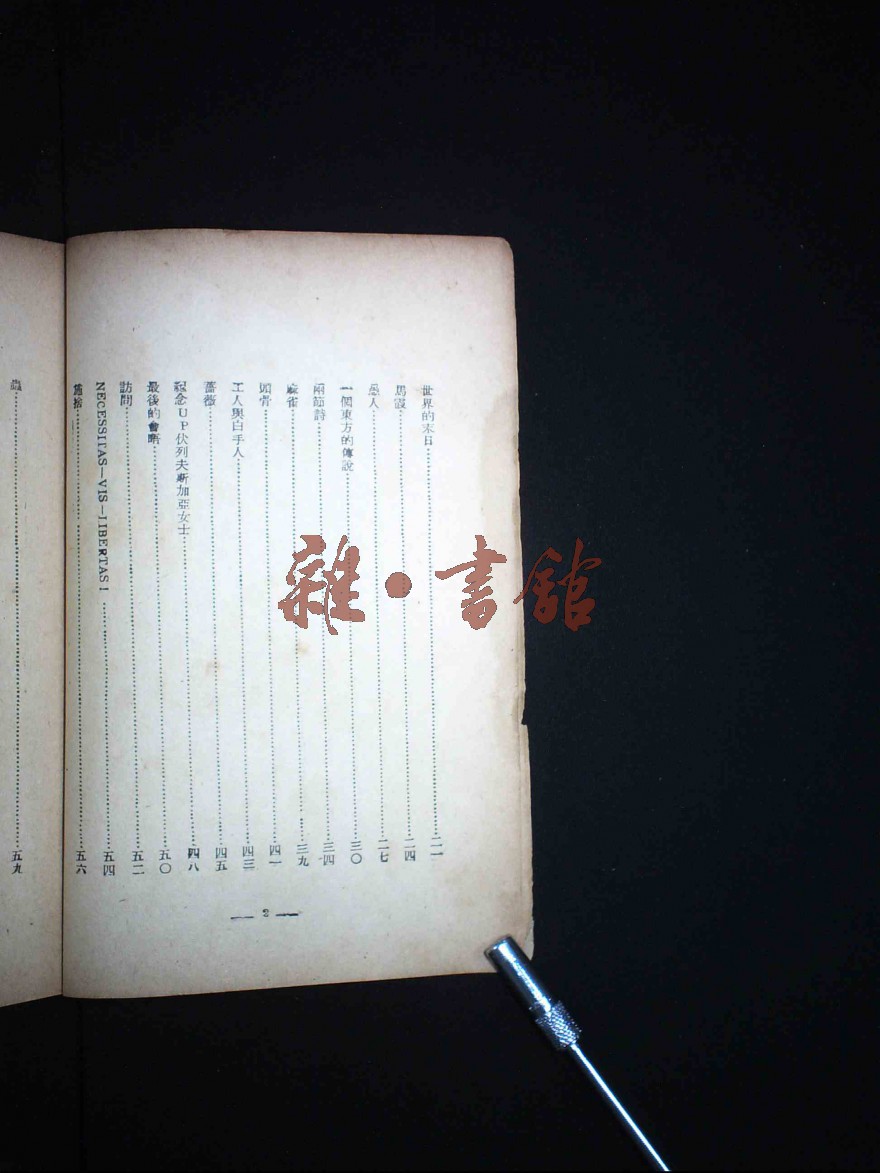 世界的末日……二一
馬霞……二四
愚人……二七
一個東方的傳說……三〇
兩節詩……三四
麻雀……三九
頭骨……四一
工人與白手人……四三
薔薇……四五
紀念UP伏列夫斯加亞女士……四八
最後的會晤……五〇
訪問……五二
NECESSITAS—VIS—LIBERTAS I……五四
施捨……五六
— 2 —
蟲……五九
雜·書舘